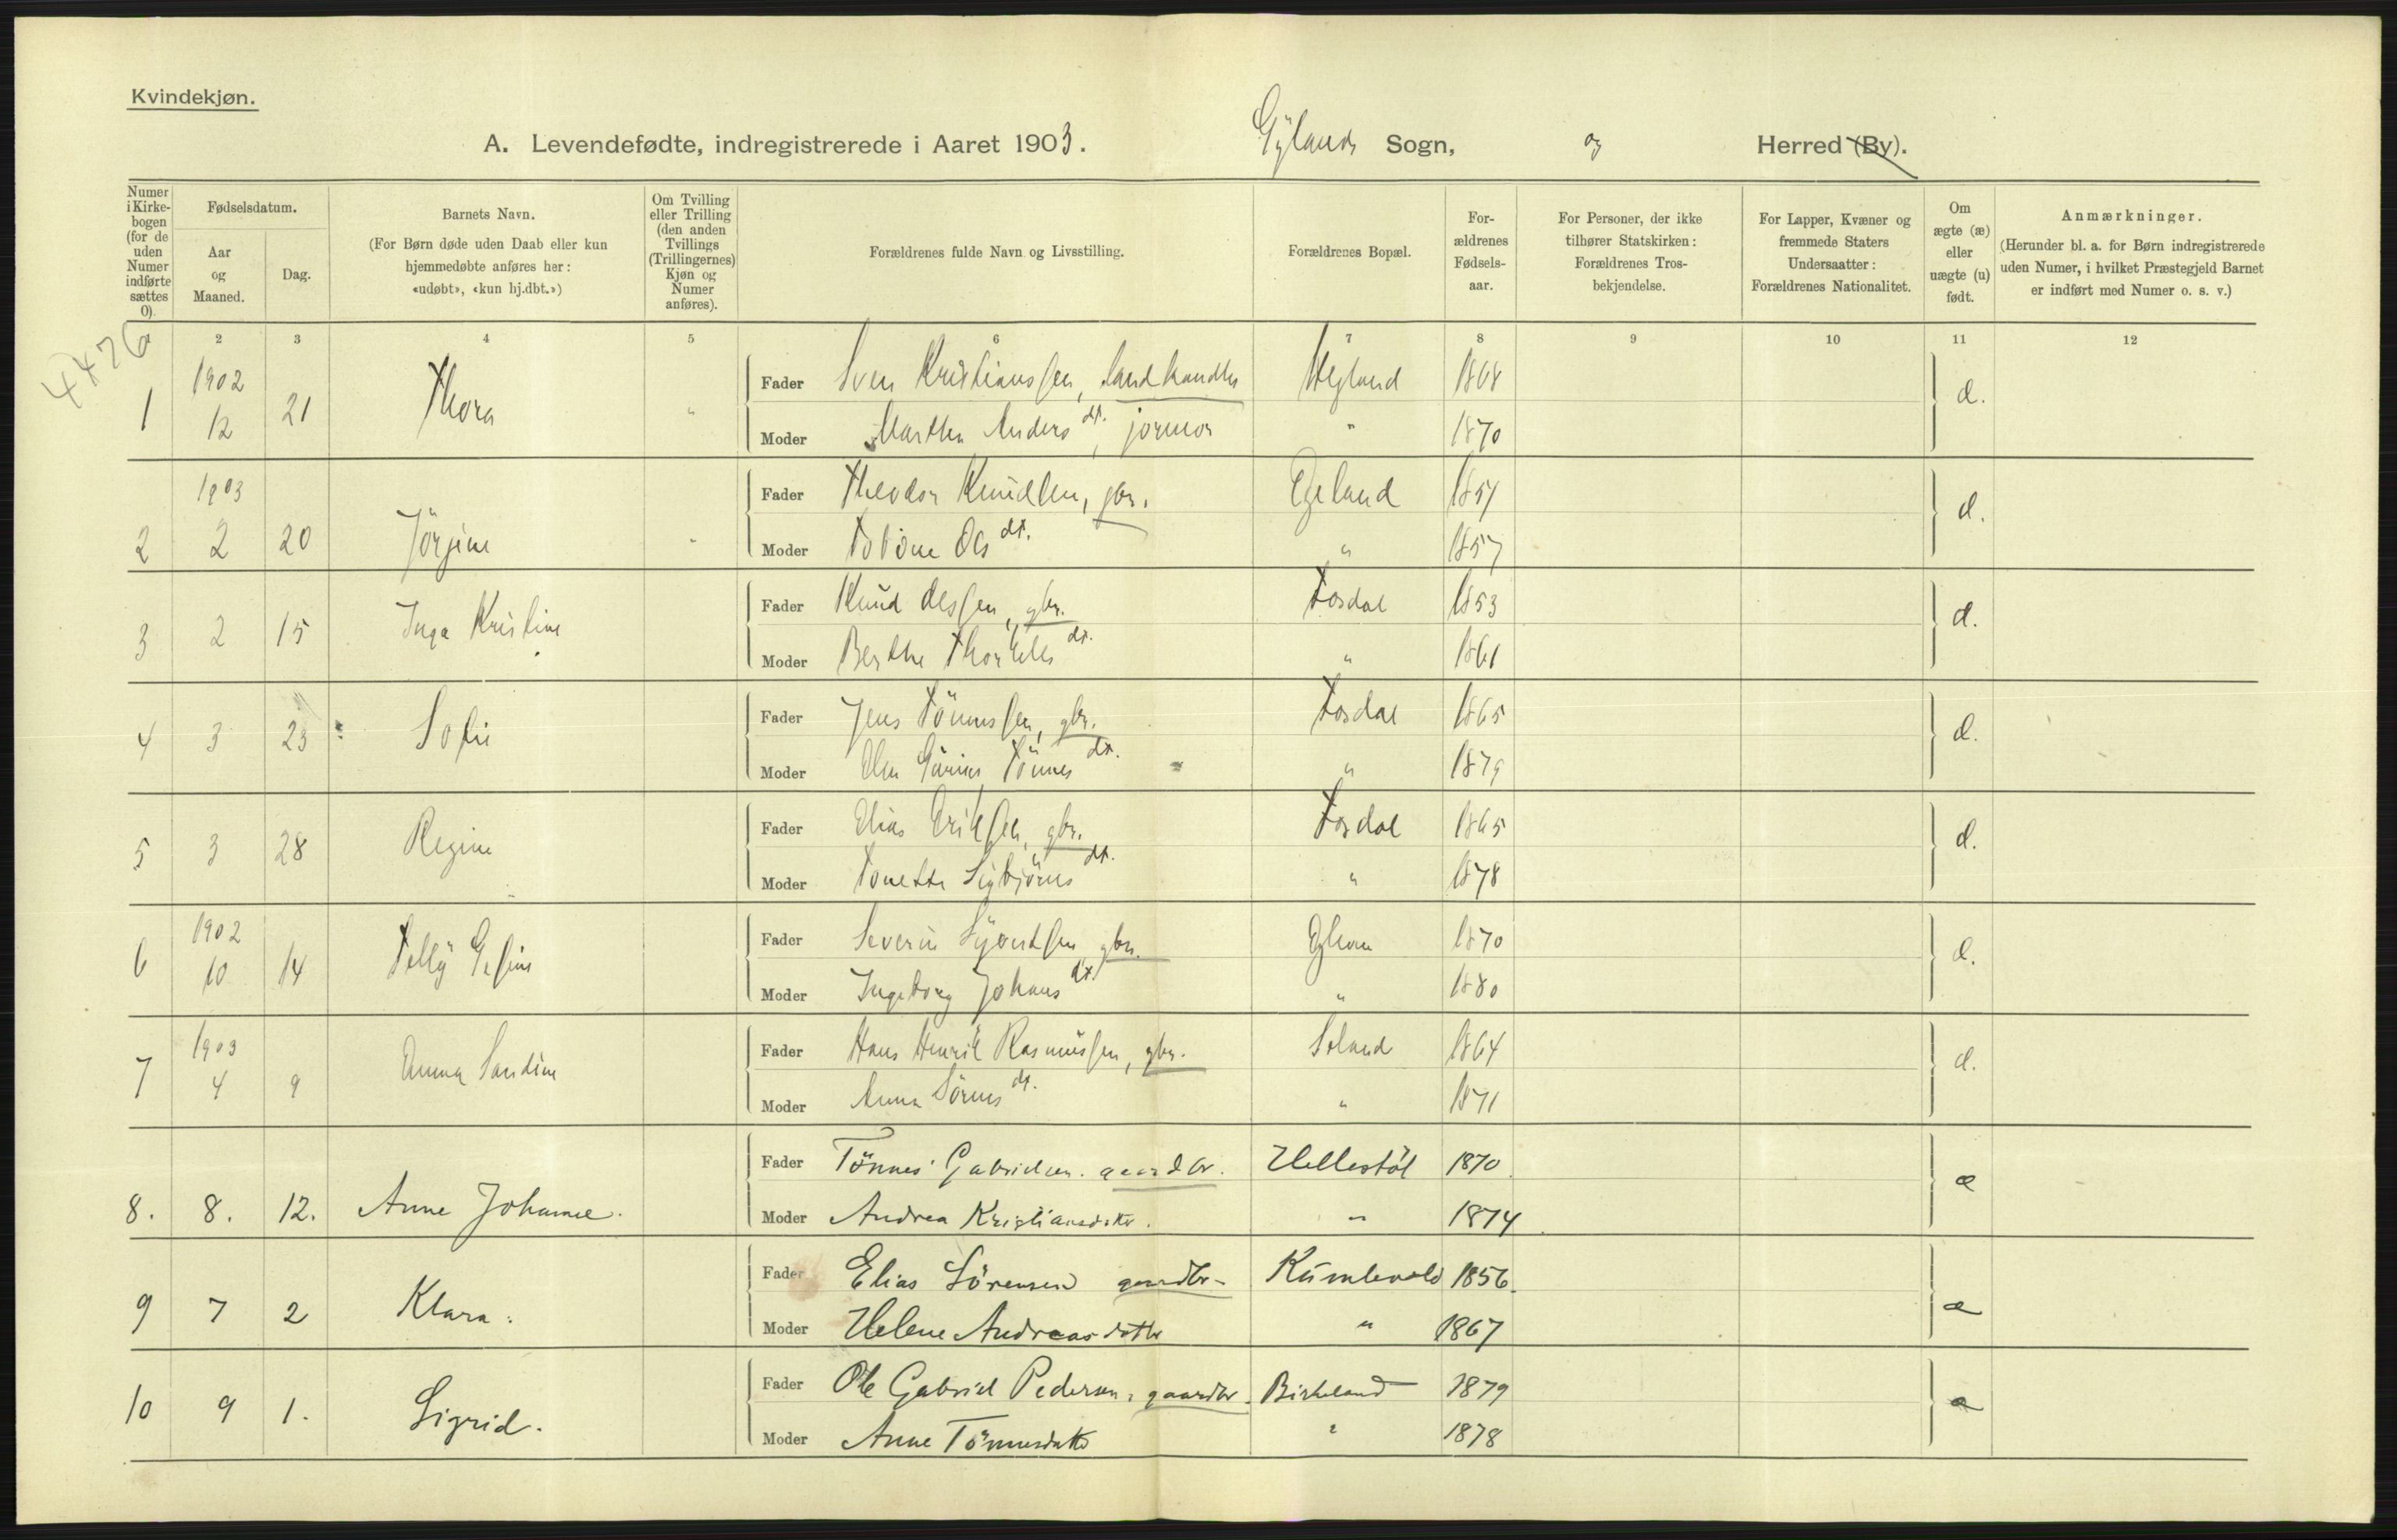 Kvindekjøn.
A. Levendefødte, indregistrerede i Aaret 1903. Gylands Sogn, og Herred (By).
Numer i Kirkebogen (for de uden Numer indførte sættes 0).
Fødselsdatum.
Aar og Maaned.
Dag.
Barnets Navn.
(For Børn døde uden Daab eller kun hjemmedøbte anføres her: «udøbt», «kun hj.dbt.»)
Om Tvilling eller Trilling (den anden Tvillings (Trillingernes) Kjøn og Numer anføres).
Forældrenes fulde Navn og Livsstilling.
Forældrenes Bopæl.
Forældrenes Fødselsaar.
For Personer, der ikke tilhører Statskirken: Forældrenes Trosbekjendelse.
For Lapper, Kvæner og fremmede Staters Undersaatter: Forældrenes Nationalitet.
Om ægte (æ) eller uægte (u) født.
Anmærkninger.
(Herunder bl. a. for Børn indregistrerede uden Numer, i hvilket Præstegjeld Barnet er indført med Numer o. s. v.)
2 3 4 5 6 7 8 9 10 11 12
4476
1 1902 12 21 Thora " Fader Sven Kristianssen, landhandler 1868
Moder Marthe Anders dt., jormor " 1870
2 1903 2 20 Jörgine " Fader Theodor Knudsen, gbr. Egeland
Moder Tobine Ols dt. " 1857
3 2 15 Inga Kristine Fader Knud Olssen, gbr. Tosdal 1853
Moder Berthe Thorkels dt. " 1861
4 3 23 Sofie Fader Jens Tönnessen, gbr. Tosdal 1865
Moder Tönnes dt. " 1879
5 3 28 Regine Fader Elias Eriksen, gbr. Tosdal 1865
Moder Tonette Sigbjörns dt. " 1878
6 1902 10 14 Telly Gesine Fader Severin Sigvartsen gbr. 1870
Moder Ingeborg Johans dt. " 1880
7 1903 4 9 Anna Sandine Fader Hans Henrik Rasmussen, gbr. Seland 1864
Moder Anna Sörens dt. " 1871
8. 8. 12. Anne Johanne. Fader Tönnes Gabrielsen. gaardbr. Hellestöl 1870 æ
Moder Andrea Kristiansdatter. " 1874
9 7 2 Klara. Fader Elias Sörensen gaardbr. Kumlevold 1856. æ
Moder Helene Andreasdatter " 1867
10 9 1. Sigrid. Fader Ole Gabriel Pedersen, gaardbr. Birkeland 1879 æ
Moder Anne Tönnesdatter " 1878